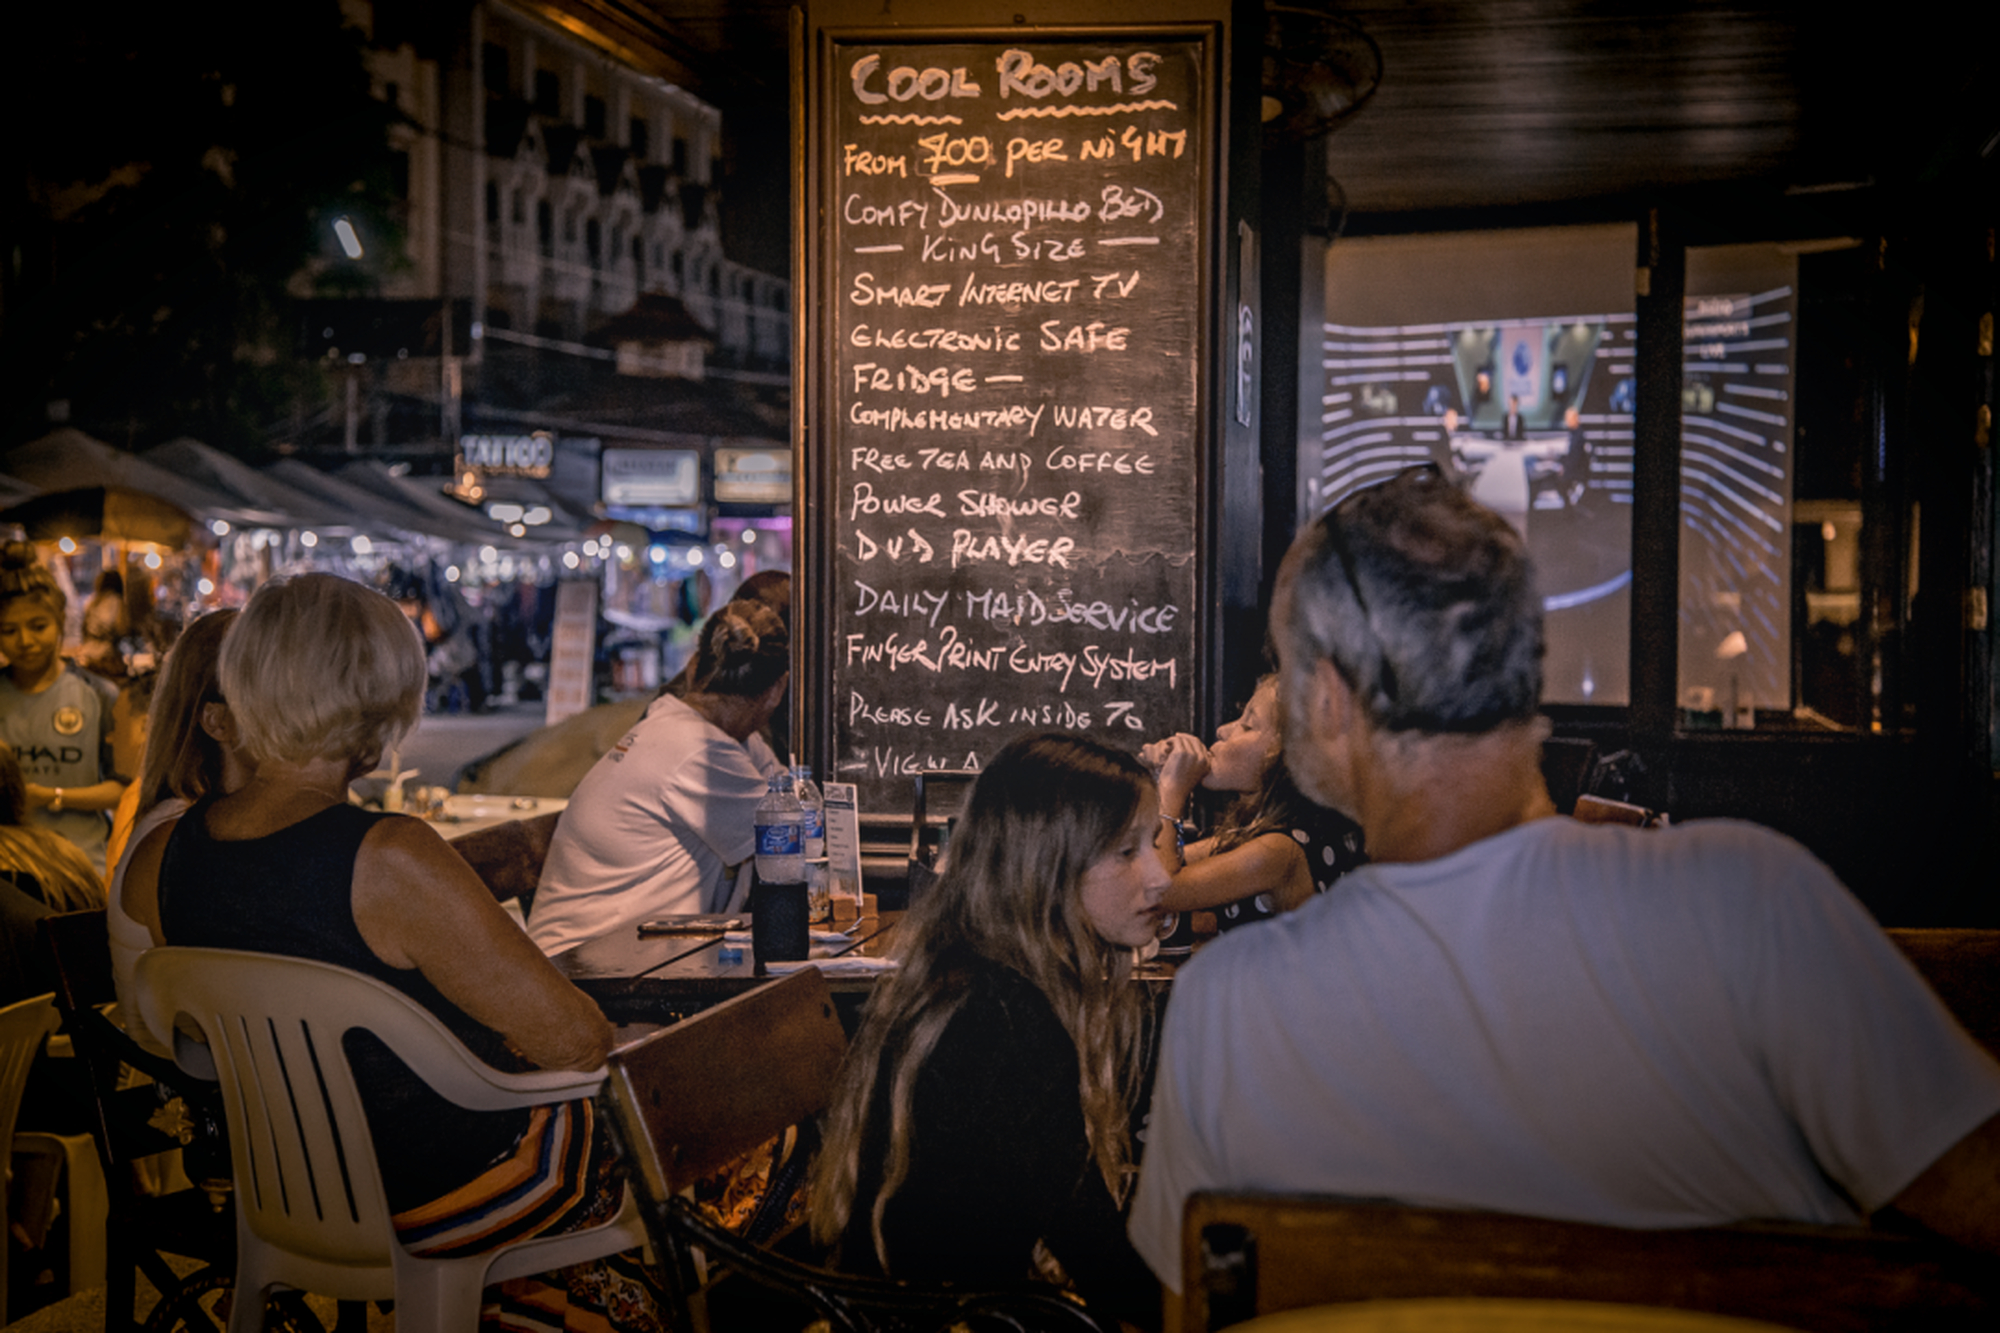 COOL ROOMS
FROM 700 PER NiGHT
COMFY DUNLOPILLO BED
— KiNG SIZE —
SMART INTERNET TV
ELECTRONiC SAFE
FRIDGE —
COMPLEMENTARY WATER
FREE TEA AND COFFEE
POWER SHOWER
DVD PLAYER
DAILY MAID SERVICE
FINGER PRINT ENTRY SYSTEM
PLEASE ASK INSIDE TO
— VIEW A
TATTOO